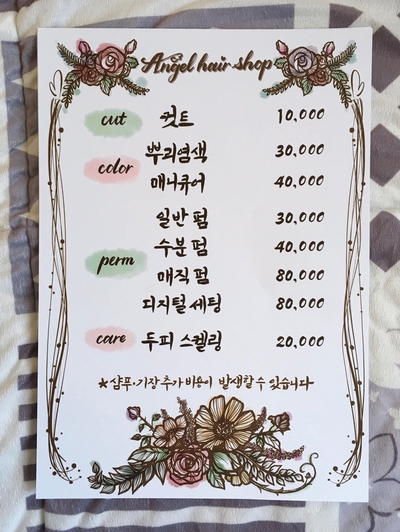 Angel hair shop
cut 컷트 10,000
color 뿌리염색 30,000
매니큐어 40,000
일반 펌 30,000
수분 펌 40,000
perm 매직 펌 80,000
디지털 세팅 80,000
care 두피 스켈링 20,000
*샴푸·기장 추가 비용이 발생할 수 있습니다